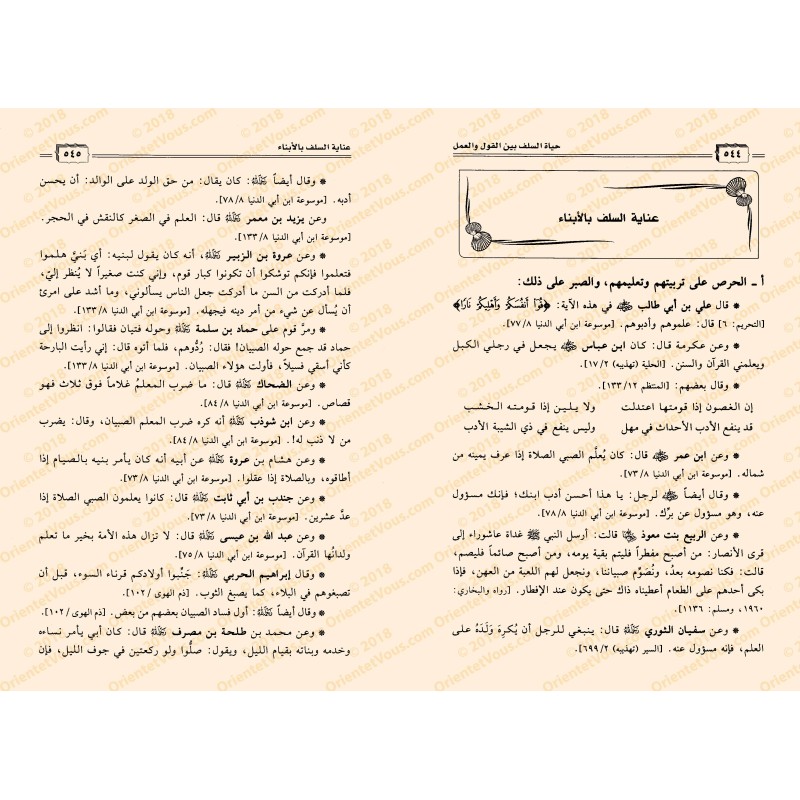 حياة السلف بين القول والعمل
٥٤٤
عناية السلف بالأبناء
أ ـ الحرص على تربيتهم وتعليمهم، والصبر على ذلك:
* قال علي بن أبي طالب ﷺ في هذه الآية: ﴿قُوٓا۟ أَنفُسَكُمْ وَأَهْلِيكُمْ نَارًا﴾
[التحريم: ٦] قال: علموهم وأدبوهم. [موسوعة ابن أبي الدنيا ٨/ ٧٧].
* وعن عكرمة قال: كان ابن عباس يجعل في رجلي الكبل
ويعلمني القرآن والسنن. [الحلية (تهذيبه) ٢/ ١٧].
* وقال بعضهم: [المنتظم ١٢/ ١٣٣].
إن الغصون إذا قومتها اعتدلت ولا يلين إذا قومته الخشب
قد ينفع الأدب الأحداث في مهل وليس ينفع في ذي الشيبة الأدب
* وعن ابن عمر قال: كان يُعلَّم الصبي الصلاة إذا عرف يمينه من
شماله. [موسوعة ابن أبي الدنيا ٨/ ٧٣].
* وقال أيضاً لرجل: يا هذا أحسن أدب ابنك؛ فإنك مسؤول
عنه، وهو مسؤول عن برِّك. [موسوعة ابن أبي الدنيا ٨/ ٧٨].
* وعن الربيع بنت معوذ قالت: أرسل النبي ﷺ غداة عاشوراء إلى
قرى الأنصار: من أصبح مفطراً فليتم بقية يومه، ومن أصبح صائماً فليصم،
قالت: فكنا نصومه بعدُ، ونُصَوِّم صبياننا، ونجعل لهم اللعبة من العهن، فإذا
بكى أحدهم على الطعام أعطيناه ذاك حتى يكون عند الإفطار. [رواه والبخاري:
١٩٦٠، ومسلم: ١١٣٦].
* وعن سفيان الثوري قال: ينبغي للرجل أن يُكرِهَ وَلَدَهُ على
العلم، فإنه مسؤول عنه. [السير (تهذيبه) ٢/ ٦٩٩].
عناية السلف بالأبناء
٥٤٥
* وقال أيضاً: كان يقال: من حق الولد على الوالد: أن يحسن
أدبه. [موسوعة ابن أبي الدنيا ٨/ ٧٨].
وعن يزيد بن معمر قال: العلم في الصغر كالنقش في الحجر.
[موسوعة ابن أبي الدنيا ٨/ ١٣٣].
* وعن عروة بن الزبير، أنه كان يقول لبنيه: أي بَنيَّ هلموا
فتعلموا فإنكم توشكوا أن تكونوا كبار قوم، وإني كنت صغيراً لا يُنظر إليَّ،
فلما أدركت من السن ما أدركت جعل الناس يسألوني، وما أشد على امرئ
أن يُسأل عن شيء من أمر دينه فيجهله. [موسوعة ابن أبي الدنيا ٨/ ١٣٣].
* ومرَّ قوم على حماد بن سلمة وحوله فتيان فقالوا: انظروا إلى
حماد قد جمع حوله الصبيان! فقال: رُدُّوهم، فلما أتوه قال: إني رأيت البارحة
كأني أسقي فسيلاً، فأولت هؤلاء الصبيان. [موسوعة ابن أبي الدنيا ٨/ ١٣٣].
* وعن الضحاك قال: ما ضرب المعلمُ غلاماً فوق ثلاث فهو
قصاص. [موسوعة ابن أبي الدنيا ٨/ ٨٤].
* وعن ابن شوذب أنه كره ضرب المعلم الصبيان، وقال: يضرب
من لا ذنب له!. [موسوعة ابن أبي الدنيا ٨/ ٨٤].
* وعن هشام بن عروة عن أبيه أنه كان يأمر بنيه بالصيام إذا
أطاقوه، وبالصلاة إذا عقلوا. [موسوعة ابن أبي الدنيا ٨/ ٧٣].
* وعن جندب بن أبي ثابت قال: كانوا يعلمون الصبي الصلاة إذا
عدَّ عشرين. [موسوعة ابن أبي الدنيا ٨/ ٧٣].
* وعن عبد الله بن عيسى قال: لا تزال هذه الأمة بخير ما تعلم
ولدانُها القرآن. [موسوعة ابن أبي الدنيا ٨/ ٧٥].
* وقال إبراهيم الحربي: جَنِّبوا أولادكم قرناء السوء، قبل أن
تصبغوهم في البلاء، كما يصبغ الثوب. [ذم الهوى/ ١٠٢].
* وقال أيضاً: أول فساد الصبيان بعضهم من بعض. [ذم الهوى/ ١٠٢].
* وعن محمد بن طلحة بن مصرف قال: كان أبي يأمر نساءه
وخدمه وبناته بقيام الليل، ويقول: صلُّوا ولو ركعتين في جوف الليل، فإن
© 2018
OrientetVous.com